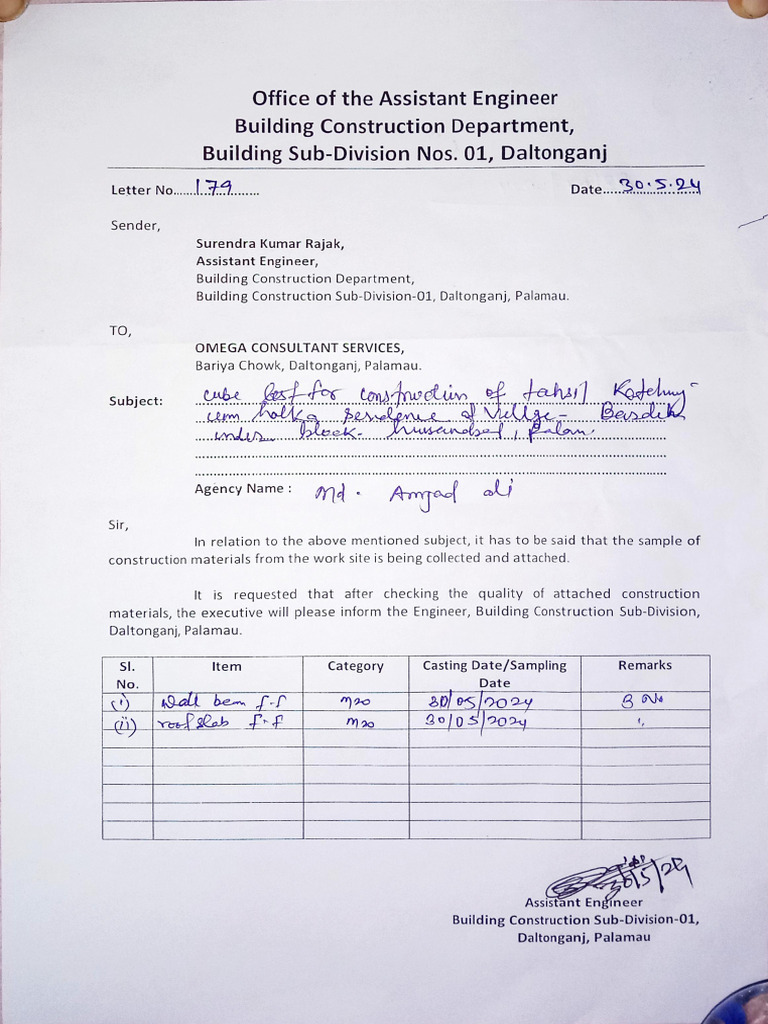 Office of the Assistant Engineer
Building Construction Department,
Building Sub-Division Nos. 01, Daltonganj
Letter No......179.............. Date......30.5.24......
Sender,
Surendra Kumar Rajak,
Assistant Engineer,
Building Construction Department,
Building Construction Sub-Division-01, Daltonganj, Palamau.
TO,
OMEGA CONSULTANT SERVICES,
Bariya Chowk, Daltonganj, Palamau.
Subject: cube test for construction of tahsil
cum halka
under block
Agency Name : Md. Amjad ali
Sir,
In relation to the above mentioned subject, it has to be said that the sample of
construction materials from the work site is being collected and attached.
It is requested that after checking the quality of attached construction
materials, the executive will please inform the Engineer, Building Construction Sub-Division,
Daltonganj, Palamau.
Sl. No. Item Category Casting Date/Sampling Date Remarks
(i) Wall bem f.f M20 30/05/2024 3 No
(ii) roof slab f.f M20 30/05/2024 "
30/5/24
Assistant Engineer
Building Construction Sub-Division-01,
Daltonganj, Palamau